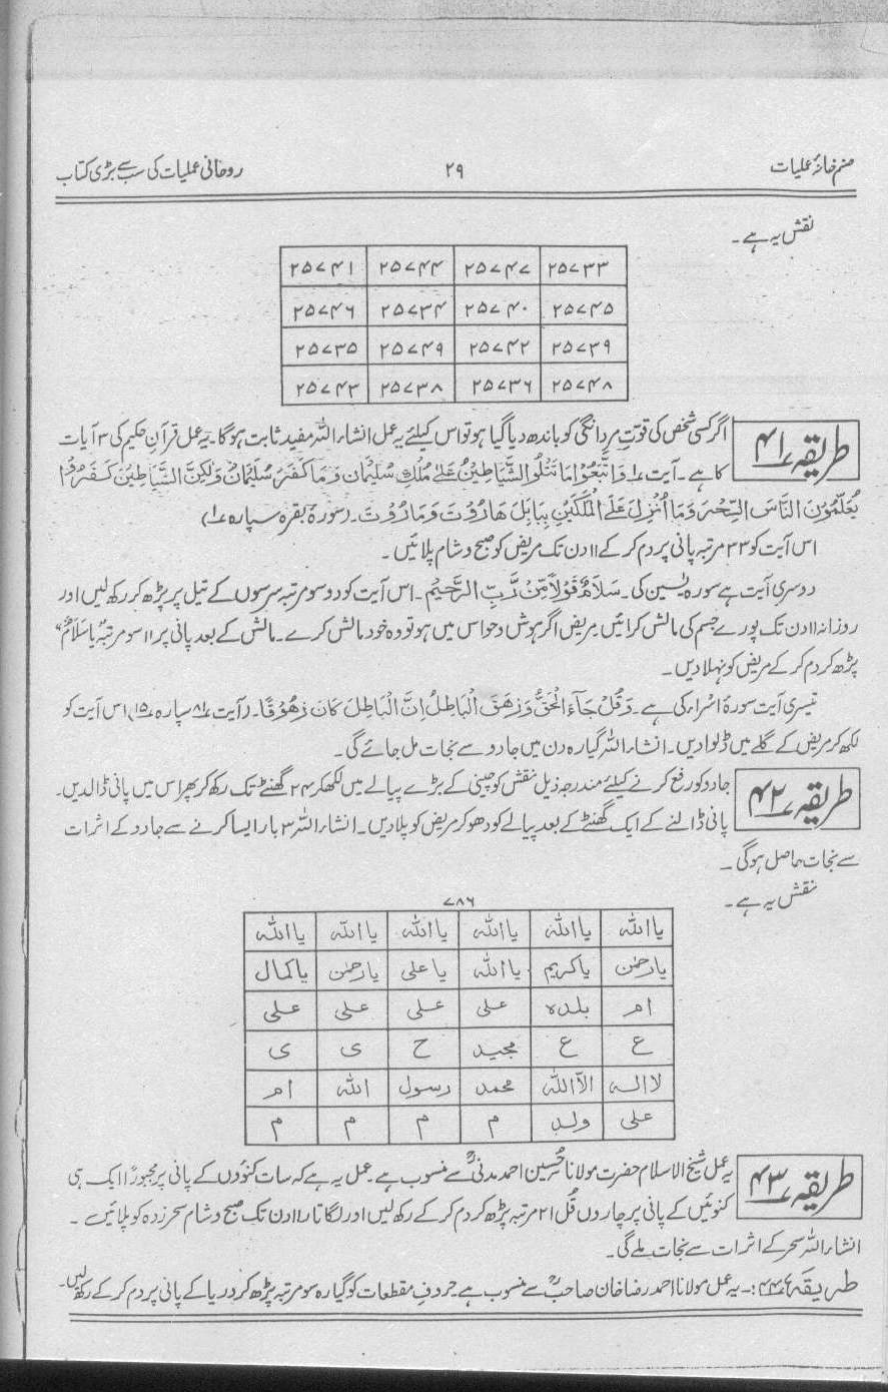 صنم خانۂ عملیات ۲۹ روحانی عملیات کی سب سے بڑی کتاب
نقش یہ ہے۔
۲۵۷۳۳ ۲۵۷۴۷ ۲۵۷۴۴ ۲۵۷۴۱
۲۵۷۴۵ ۲۵۷۴۰ ۲۵۷۳۴ ۲۵۷۴۶
۲۵۷۳۹ ۲۵۷۴۲ ۲۵۷۴۹ ۲۵۷۳۵
۲۵۷۴۸ ۲۵۷۳۶ ۲۵۷۳۸ ۲۵۷۴۳
طریقہ ۴۱ اگر کسی شخص کی قوتِ مردانگی کو باندھ دیا گیا ہو تو اس کیلئے یہ عمل انشاء اللہ مفید ثابت ہوگا۔ یہ عمل قرآن حکیم کی ۳ آیات
کا ہے۔ آیت ۱ وَاتَّبَعُوْا مَا تَتْلُوا الشَّيَاطِيْنُ عَلٰى مُلْكِ سُلَيْمَان وَمَا كَفَرَ سُلَيْمَانُ وَلٰكِنَّ الشَّيَاطِيْنَ كَفَرُوْا
يُعَلِّمُوْنَ النَّاسَ السِّحْرَ وَمَا اُنْزِلَ عَلَى الْمَلَكَيْنِ بِبَابِلَ هَارُوْتَ وَمَارُوْتَ۔ (سورۂ بقرہ سپارہ ۱)
اس آیت کو ۳۳ مرتبہ پانی پر دم کر کے ۱۱ دن تک مریض کو صبح و شام پلائیں۔
دوسری آیت ہے سورہ یٰسین کی۔ سَلَامٌ قَوْلًا مِّنْ رَّبٍّ الرَّحِيْمِ۔ اس آیت کو دو سو مرتبہ سرسوں کے تیل پر پڑھ کر رکھ لیں اور
روزانہ ۱۱ دن تک پورے جسم کی مالش کرائیں مریض اگر ہوش و حواس میں ہو تو وہ خود مالش کرے۔ مالش کے بعد پانی پر ۱۱ سو مرتبہ "یا سَلَامُ"
پڑھ کر دم کر کے مریض کو نہلا دیں۔
تیسری آیت سورۂ اسراء کی ہے۔ وَقُلْ جَآءَ الْحَقُّ وَزَهَقَ الْبَاطِلُ اِنَّ الْبَاطِلَ كَانَ زَهُوْقًا۔ (آیت ۸۱ سپارہ ۱۵) اس آیت کو
لکھ کر مریض کے گلے میں ڈلوا دیں۔ انشاء اللہ گیارہ دن میں جادو سے نجات مل جائے گی۔
طریقہ ۴۲ جادو کو رفع کرنے کیلئے مندرجہ ذیل نقش کو چینی کے بڑے پیالے میں لکھ کر ۲۴ گھنٹے تک رکھ کر پھر اس میں پانی ڈالدیں۔
پانی ڈالنے کے ایک گھنٹے کے بعد پیالے کو دھو کر مریض کو پلا دیں۔ انشاء اللہ ۳ بار ایسا کرنے سے جادو کے اثرات
سے نجات حاصل ہوگی۔
نقش یہ ہے۔
۷۸۶
یا اللہ یا اللہ یا اللہ یا اللہ یا اللہ یا اللہ
یا رحمٰن یا کریم یا اللہ یا علی یا رحمٰن یا کمال
ام بلدہ علی علی علی علی
ع ع مجید ح ی ی
لا الہ الا اللہ محمد رسول اللہ ام
علی ولد م م م م
طریقہ ۴۳ یہ عمل شیخ الاسلام حضرت مولانا حسین احمد مدنیؒ سے منسوب ہے۔ عمل یہ ہے کہ سات کنوؤں کے پانی پر مجبوراً ایک ہی
کنوئیں کے پانی پر چاروں قُل ۲۱ مرتبہ پڑھ کر دم کر کے رکھ لیں اور لگاتار ۱۱ دن تک صبح و شام سحر زدہ کو پلائیں۔
انشاء اللہ سحر کے اثرات سے نجات ملے گی۔
طریقہ ۴۴ :۔ یہ عمل مولانا احمد رضا خان صاحبؒ سے منسوب ہے۔ حروف مقطعات کو گیارہ سو مرتبہ پڑھ کر دریا کے پانی پر دم کر کے رکھ لیں۔